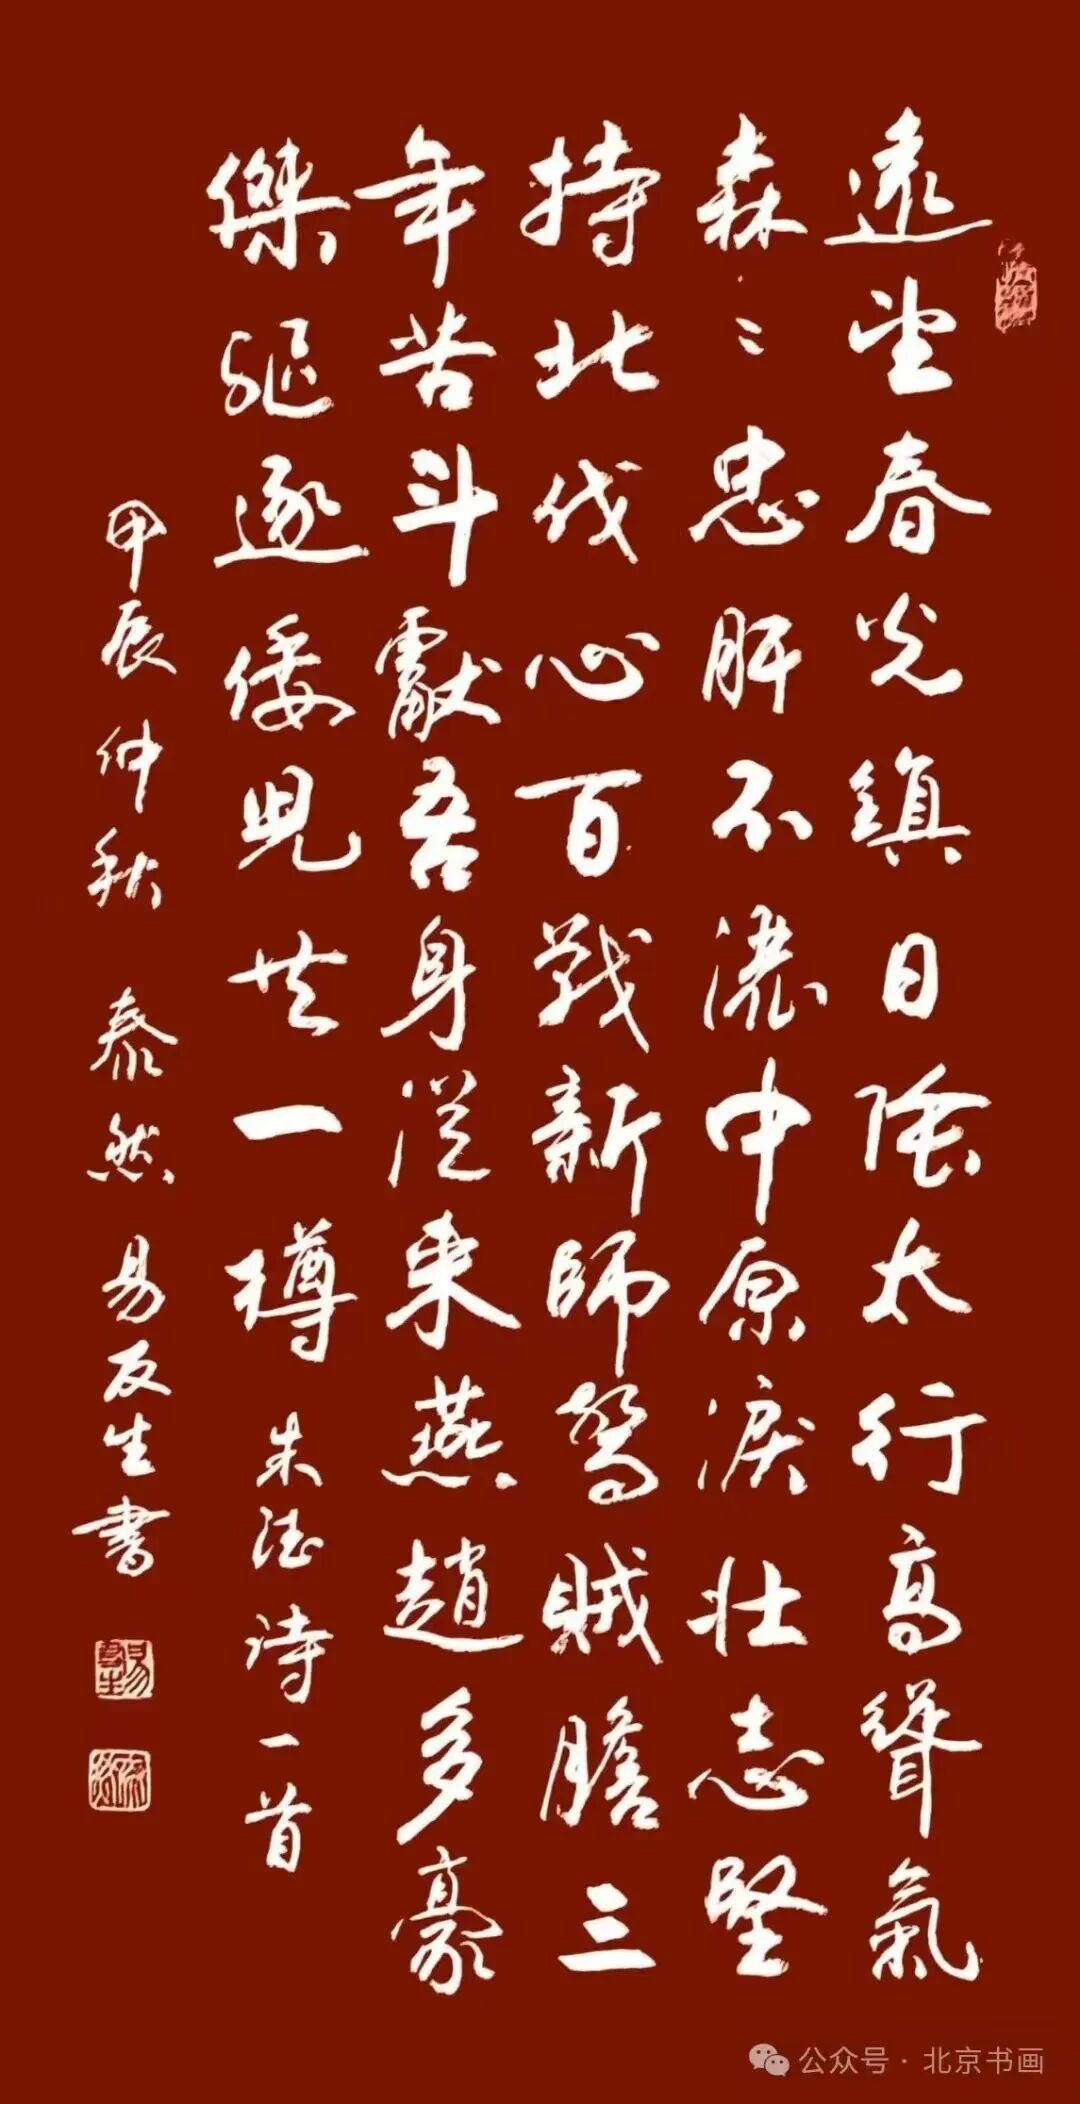 遠望春光鎮日陰太行高聳氣
森々忠肝不灑中原淚壯志堅
持北伐心百戰新師驚賊膽三
年苦斗獻吾身從來燕趙多豪
傑驅逐倭兒共一樽 朱德詩一首
甲辰仲秋 泰然 易友生書
公众号·北京书画